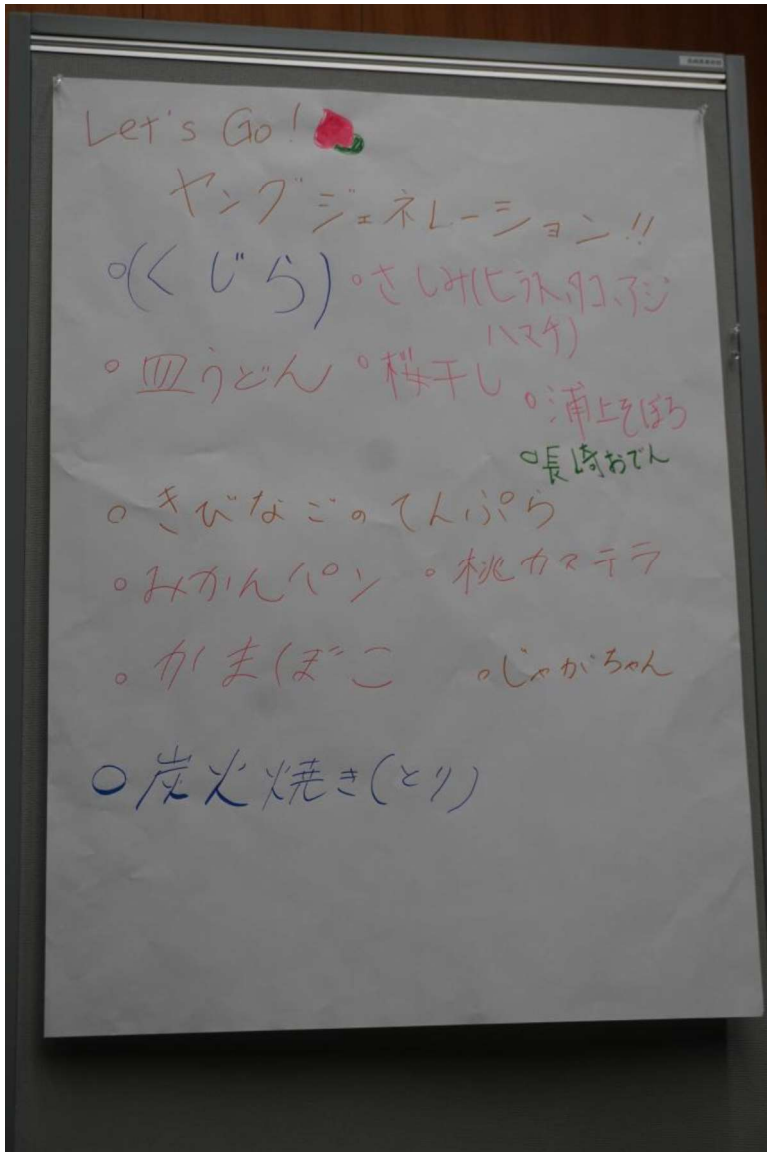 Let's Go!
ヤングジェネレーション!!
○(くじら) ○さしみ(ヒラス、タコ、アジ
ハマチ)
○皿うどん ○桜干し
○浦上そぼろ
○長崎おでん
○きびなごのてんぷら
○みかんパン ○桃カステラ
○かまぼこ ○じゃがちゃん
○炭火焼き(とり)